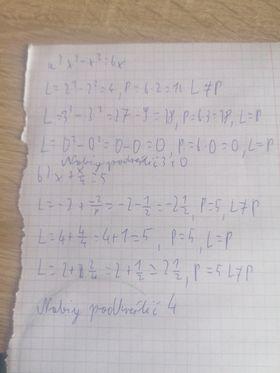 a) x³-x²=6x
L=2³-2²=4, P=6·2=12 L≠P
L=3³-3²=27-9=18, P=6·3=18, L=P
L=0³-0²=0-0=0, P=6·0=0, L=P
Należy podkreślić 3 i 0
b) x+x/4=5
L=-2+-2/4=-2-1/2=-2 1/2, P=5, L≠P
L=4+4/4=4+1=5, P=5, L=P
L=2+2/4=2+1/2=2 1/2, P=5 L≠P
Należy podkreślić 4